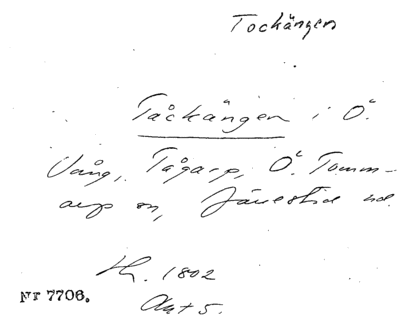 Tockängen
Tåckängen i Ö.
Vång, Tågarp, Ö. Tomm-
arp sn, Järrestad hd.
1802
Akt 5.
Nr 7706.